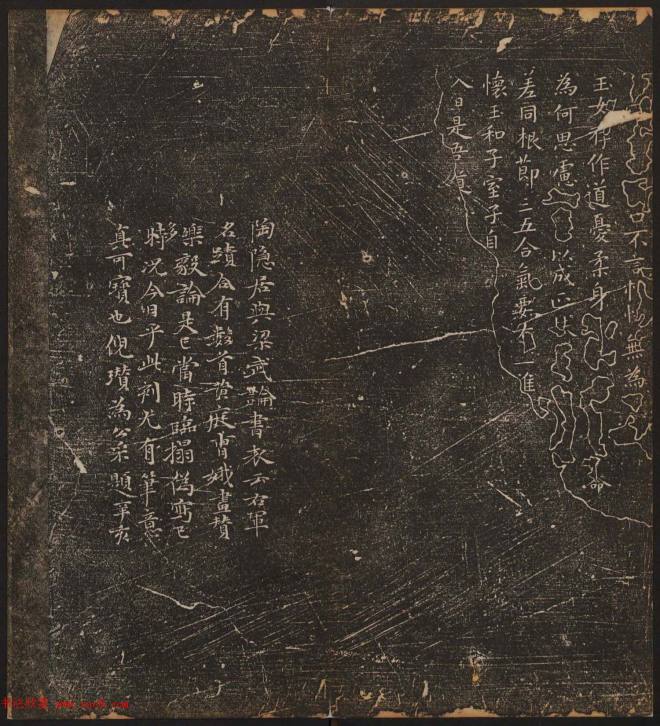 口不言恬惔無為
玉女存作道憂柔身
為何思慮以成
差同根節三五合氣要有一進
懷王和子室子自
今日是吾真
陶隱居與梁武論書表云右軍
名蹟合有數首黃庭曹娥畫贊
樂毅論是已當時臨搨偽
時況今日乎此刻尤有筆意
真可寶也倪瓚為公